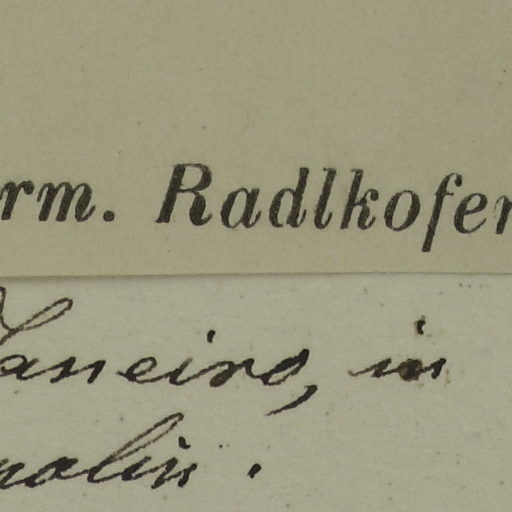 rm. Radlkofer
Janeiro, in
nalin.